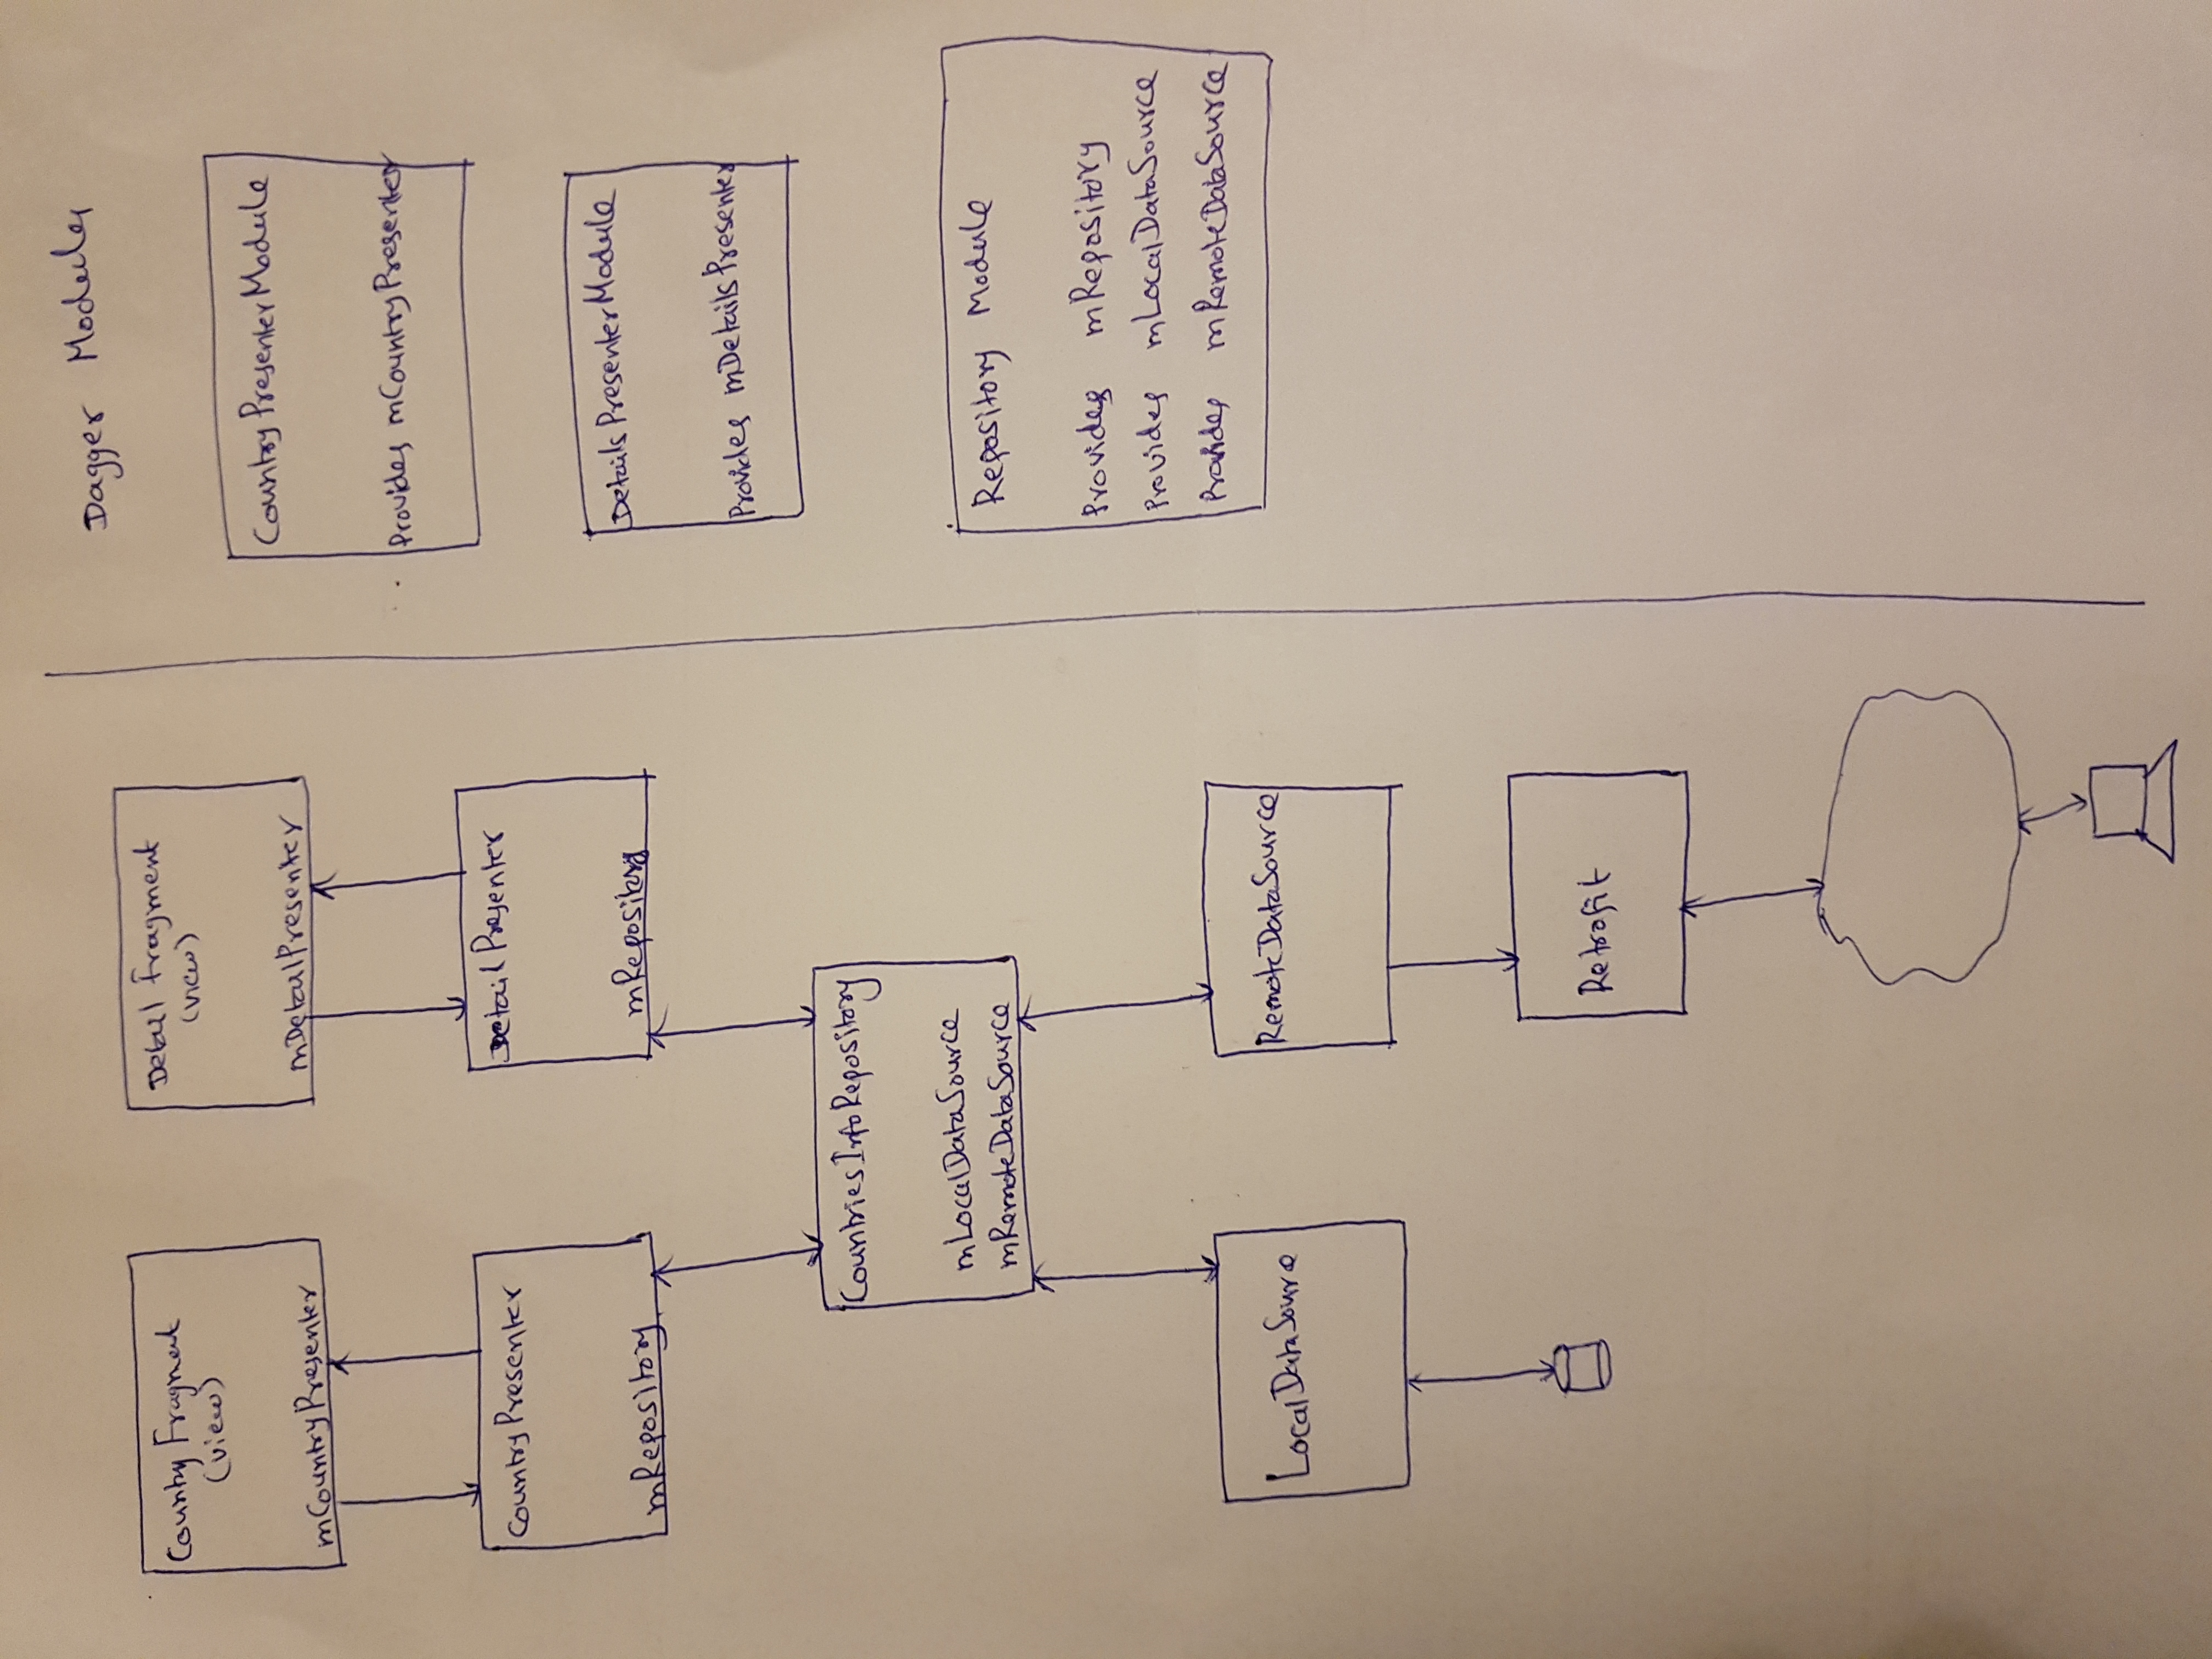 Country Fragment
(view)
mCountryPresenter
Detail Fragment
(view)
mDetailPresenter
CountryPresenter
mRepository
Detail Presenter
mRepository
CountriesInfoRepository
mLocalDataSource
mRemoteDataSource
LocalDataSource
RemoteDataSource
Retrofit
Dagger Modules
CountryPresenterModule
Provides mCountryPresenter
DetailsPresenterModule
Provides mDetailsPresenter
Repository Module
Provides mRepository
Provides mLocalDataSource
Provides mRemoteDataSource